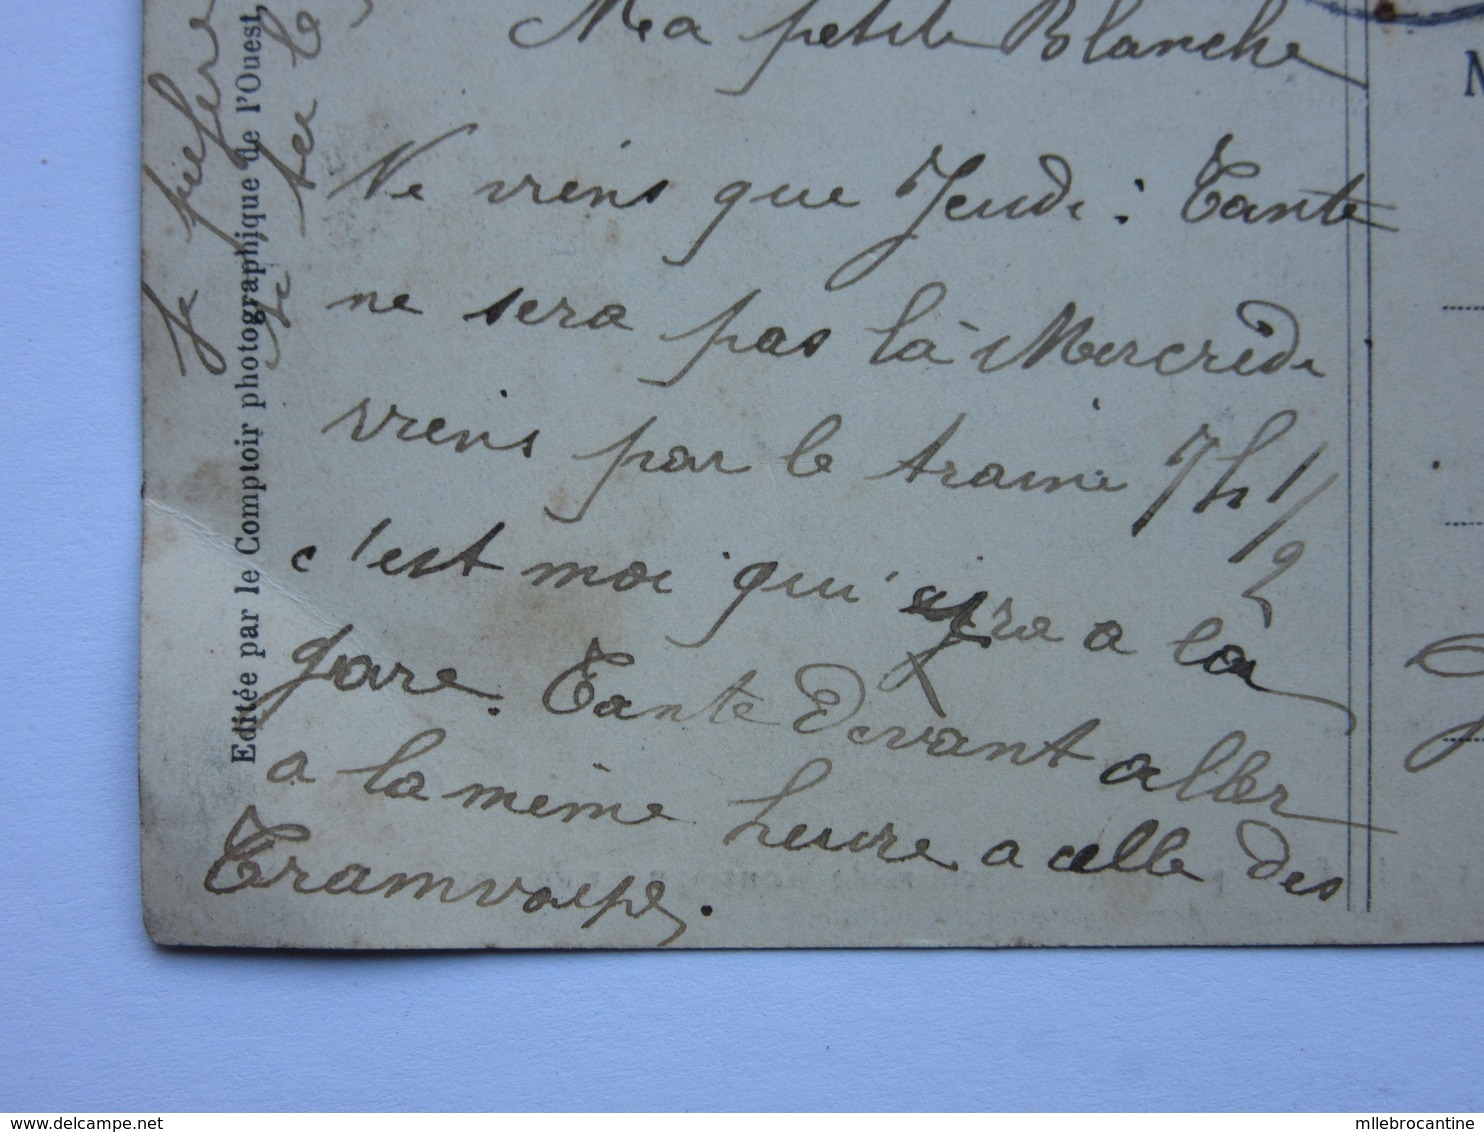 Ma petite Blanche
Ne viens que Jeudi : Tante
ne sera pas là Mercredi
viens par le traine 7h 1/2
c'est moi qui ira a là
gare. Tante devant aller
a la même heure a celle des
Tramways.
Je prefere
te
Editée par le Comptoir photographique de l'Ouest,
delcampe.net
mllebrocantine